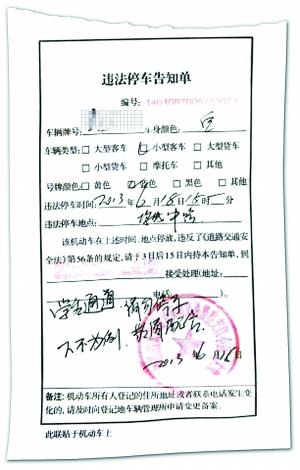 违法停车告知单
编号:
车辆牌号: 车身颜色: 白
车辆类型: □ 大型客车 □ 小型客车 □ 大型货车
□ 小型货车 □ 摩托车 □ 其他
号牌颜色 □ 黄色 □ 色 □ 黑色 □ 其他
违法停车时间: 2013 年 6 月 15 日 15 时 分
违法停车地点: 中路
该机动车在上述时间、地点停放,违反了《道路交通安
全法》第56条的规定,请于3日后15日内持本告知单,到
接受处理(地址:
电话:
学会通通 请勿停车
下不为例 敬请配合
2013 年 6 月 日
备注: 机动车所有人登记的住所地址或者联系电话发生变
化的,请及时向登记地车辆管理所申请变更备案。
此联贴于机动车上